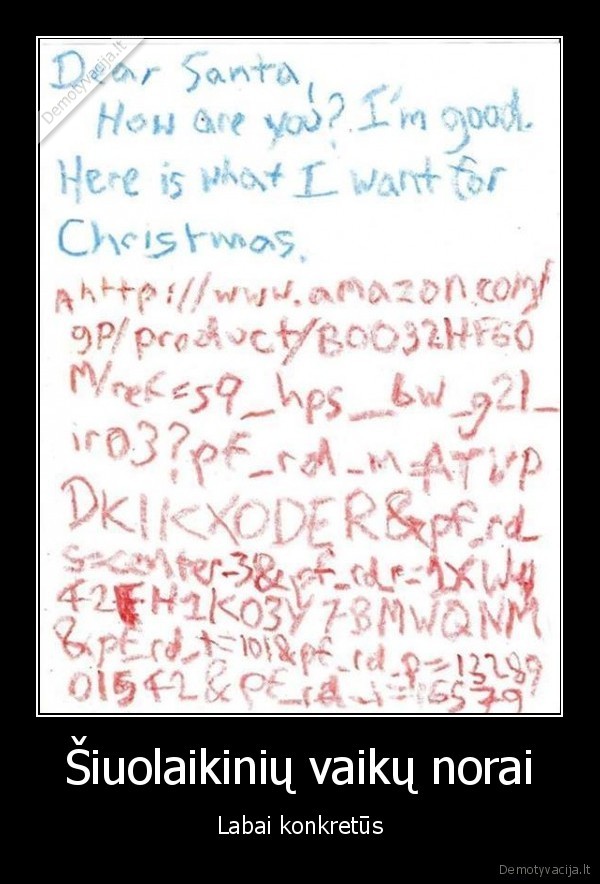 Demotyvacija.lt
Dear Santa,
How are you? I'm good.
Here is what I want for
Christmas.
A http://www.amazon.com/
gp/product/B0032HF60
M/ref=s9_hps_bw_g21_
ir03?pf_rd_m=ATVP
DKIKX0DER&pf_rd_
s=center-3&pf_rd_r=1XWy
42FH1K03Y78MWQNM
&pf_rd_t=101&pf_rd_p=13289
01542&pf_rd_i=16579
Šiuolaikinių vaikų norai
Labai konkretūs
Demotyvacija.lt